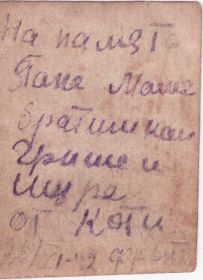 На память
Папе Маме
братишкам
Грише и
Шуре
от Коти